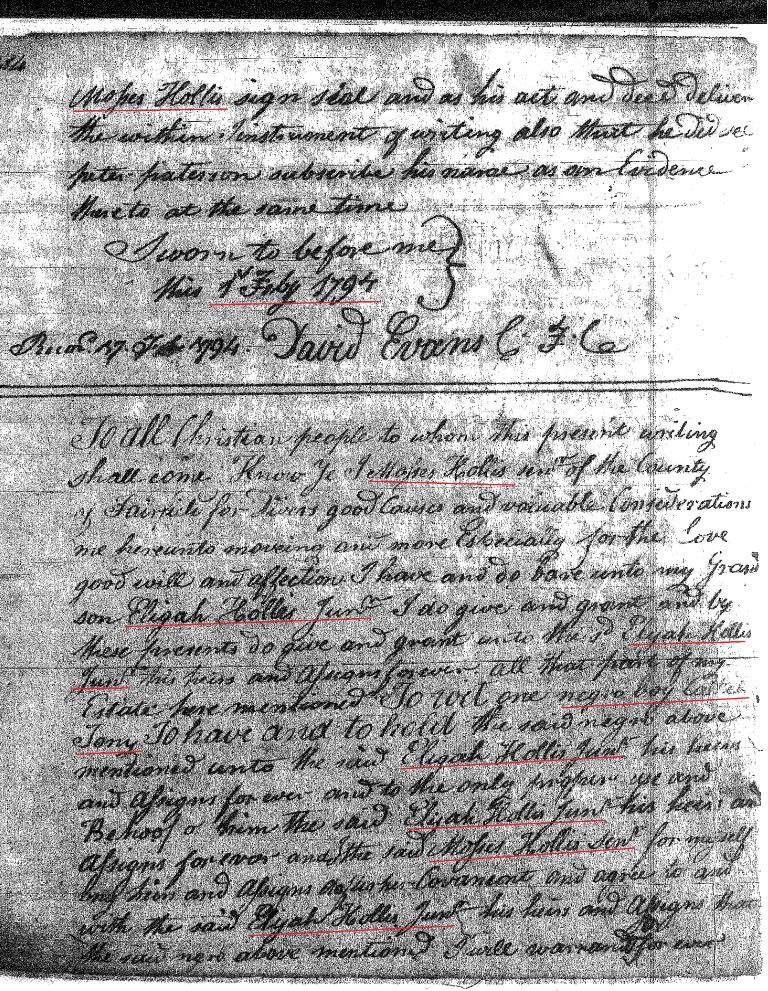 Moses Hollis sign seal and as his act and deed deliver
the within instrument of writing also that he did see
peter paterson subscribe his name as an Evidence
thereto at the same time
Sworn to before me
this 1st Feby 1794
17 Feb 1794. David Evans C F C
To all Christian people to whom this present writing
shall come Know Ye I Moses Hollis senr of the County
of Fairfield for divers good Causes and valuable Considerations
me hereunto moveing and more Especially for the Love
good will and affection I have and do bare unto my Grand
son Elijah Hollis Junr I do give and grant and by
these presents do give and grant unto the sd Elijah Hollis
Junr his heirs and Assigns forever all that part of my
Estate here mentioned To wit one negro boy
Tony To have and to hold the said negro above
mentioned unto the said Elijah Hollis Junr his heirs
and Assigns for ever and to the only proper use and
Behoof of him the said Elijah Hollis Junr his heirs and
Assigns for ever and the said Moses Hollis Senr for my self
my heirs and Assigns Covenant and agree to and
with the said Elijah Hollis Junr his heirs and Assigns that
the said negro above mentioned I will warrant for ever